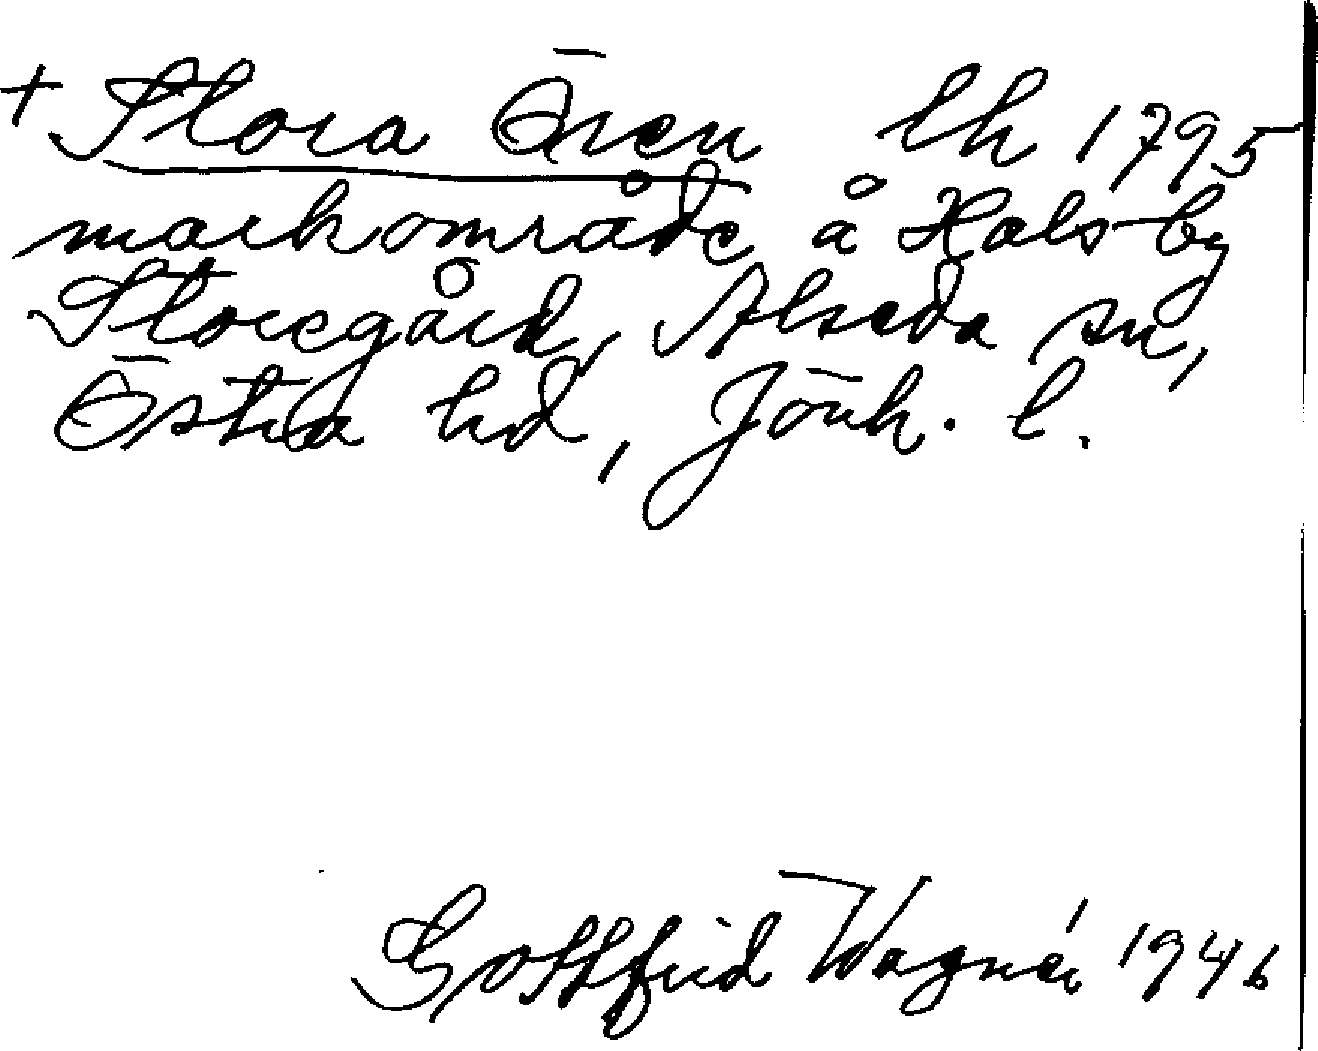 + Stora Ören lh 1795
markområde å Halsby
Storegård, Alseda sn,
Östra hd, Jönk. l.
Gottfrid Wagnér 1946